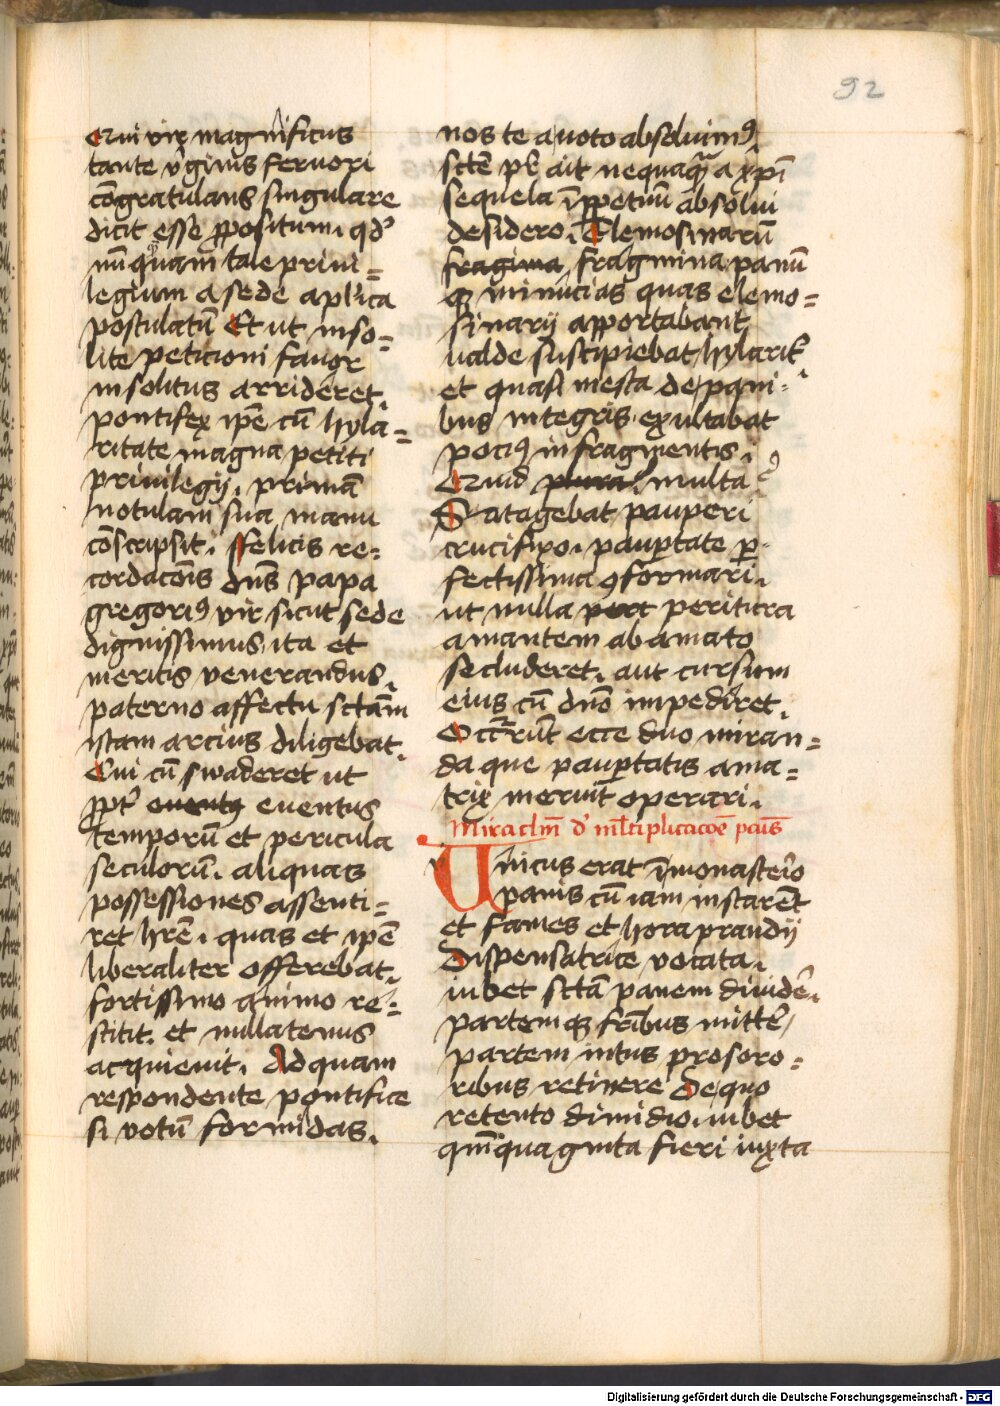 92
Qui vir magnificus
tante v̄ginis feruori
cōgratulans singulare
dicit esse ꝓpositum. qd᷒
nūquam tale priui=
legium a sede apl̄ica
postulatū Et ut inso=
lite peticioni fauor
insolitus arrideret.
pontifex ip̄e cū hyla=
ritate magna petiti
priuilegij. primā
notulam sua manu
cōscripsit. Felicis re=
cordacōis dn̄s papa
gregoriꝰ vir sicut sede
dignissimus ita et
meritis venerandus.
paterno affectu sctām
istam arcius diligebat.
Cui cū swaderet ut
ꝓpt᷒ euentꝰ euentus
temporū et pericula
seculorū. aliquas
possessiones assenti=
ret hr̄e. quas et ip̄e
liberaliter offerebat.
fortissimo animo re=
stitit. et nullatenus
acquieuit. Ad quam
respondente pontifice
si votū formidas.
nos te a uoto absoluimꝰ.
sctē pr̄ ait nequaq̄ a xp̄i
sequela ī ꝑpetuū absolui
desidero. Elemosinarū
fragima fragmina panū
qꝫ minucias quas elemo=
sinarij apportabant
ualde suscipiebat hylarit᷒.
et quasi mesta de pani=
bus integris exultabat
pociꝰ in fragmentis.
Quid plura. multa
Satagebat pauperi
crucifixo. pauꝑtate ꝑ=
fectissima ꝯformari.
ut nulla pert peritura
amantem ab amato
secluderet. aut cursum
eius cū dn̄o impediret.
Occr̄rūt ecce duo miran=
da que pauꝑtatis ama=
trix meruit operari.
Miraclm̄ d᷒ ml̄tiplicacōe pais̄
Unicus erat ī monasterio
panis cū iam instarēt
et fames et hora prandij
Dispensatrice vocata.
iubet sctā panem diuidēr.
partemqꝫ frībus mittēr
partem intus pro soro=
ribus retinere De quo
retento dimidio. iubet
quīquaginta fieri iuxta
Digitalisierung gefördert durch die Deutsche Forschungsgemeinschaft - DFG